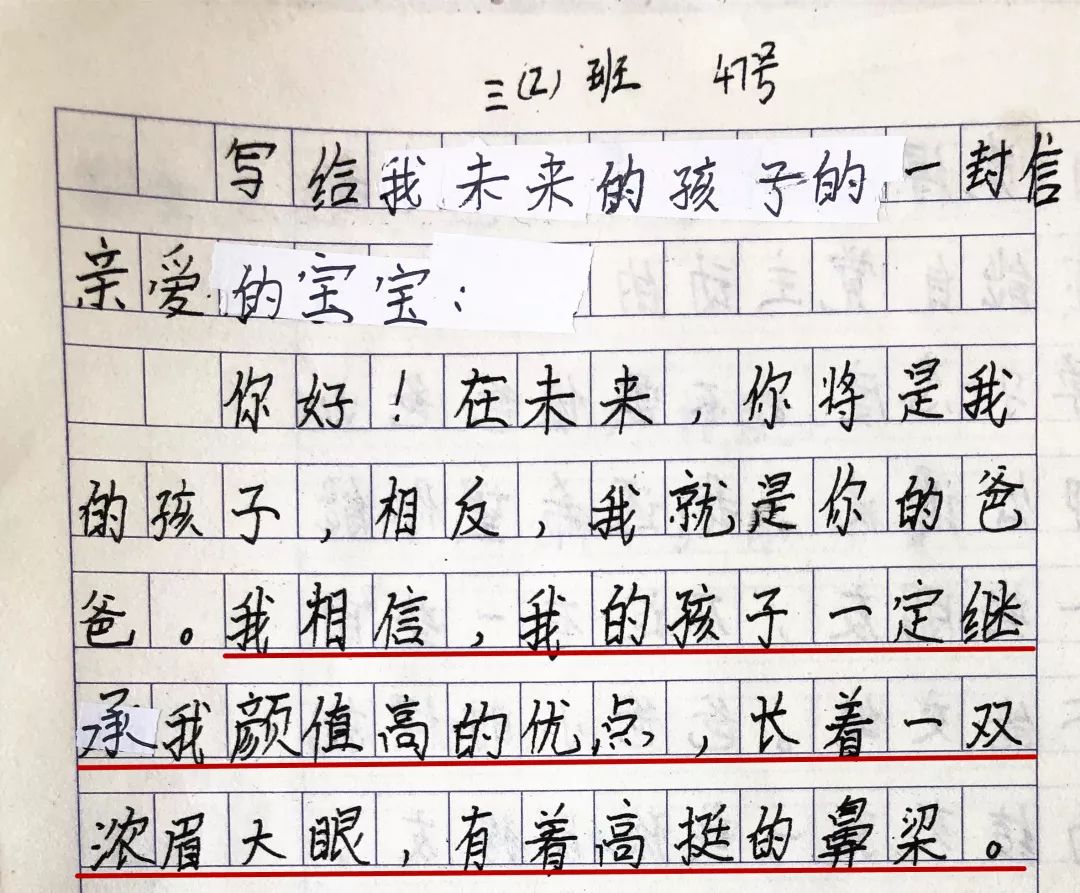 三(2)班 47号
写给我未来的孩子的一封信
亲爱的宝宝：
你好！在未来，你将是我
的孩子，相反，我就是你的爸
爸。我相信，我的孩子一定继
承我颜值高的优点，长着一双
浓眉大眼，有着高挺的鼻梁。